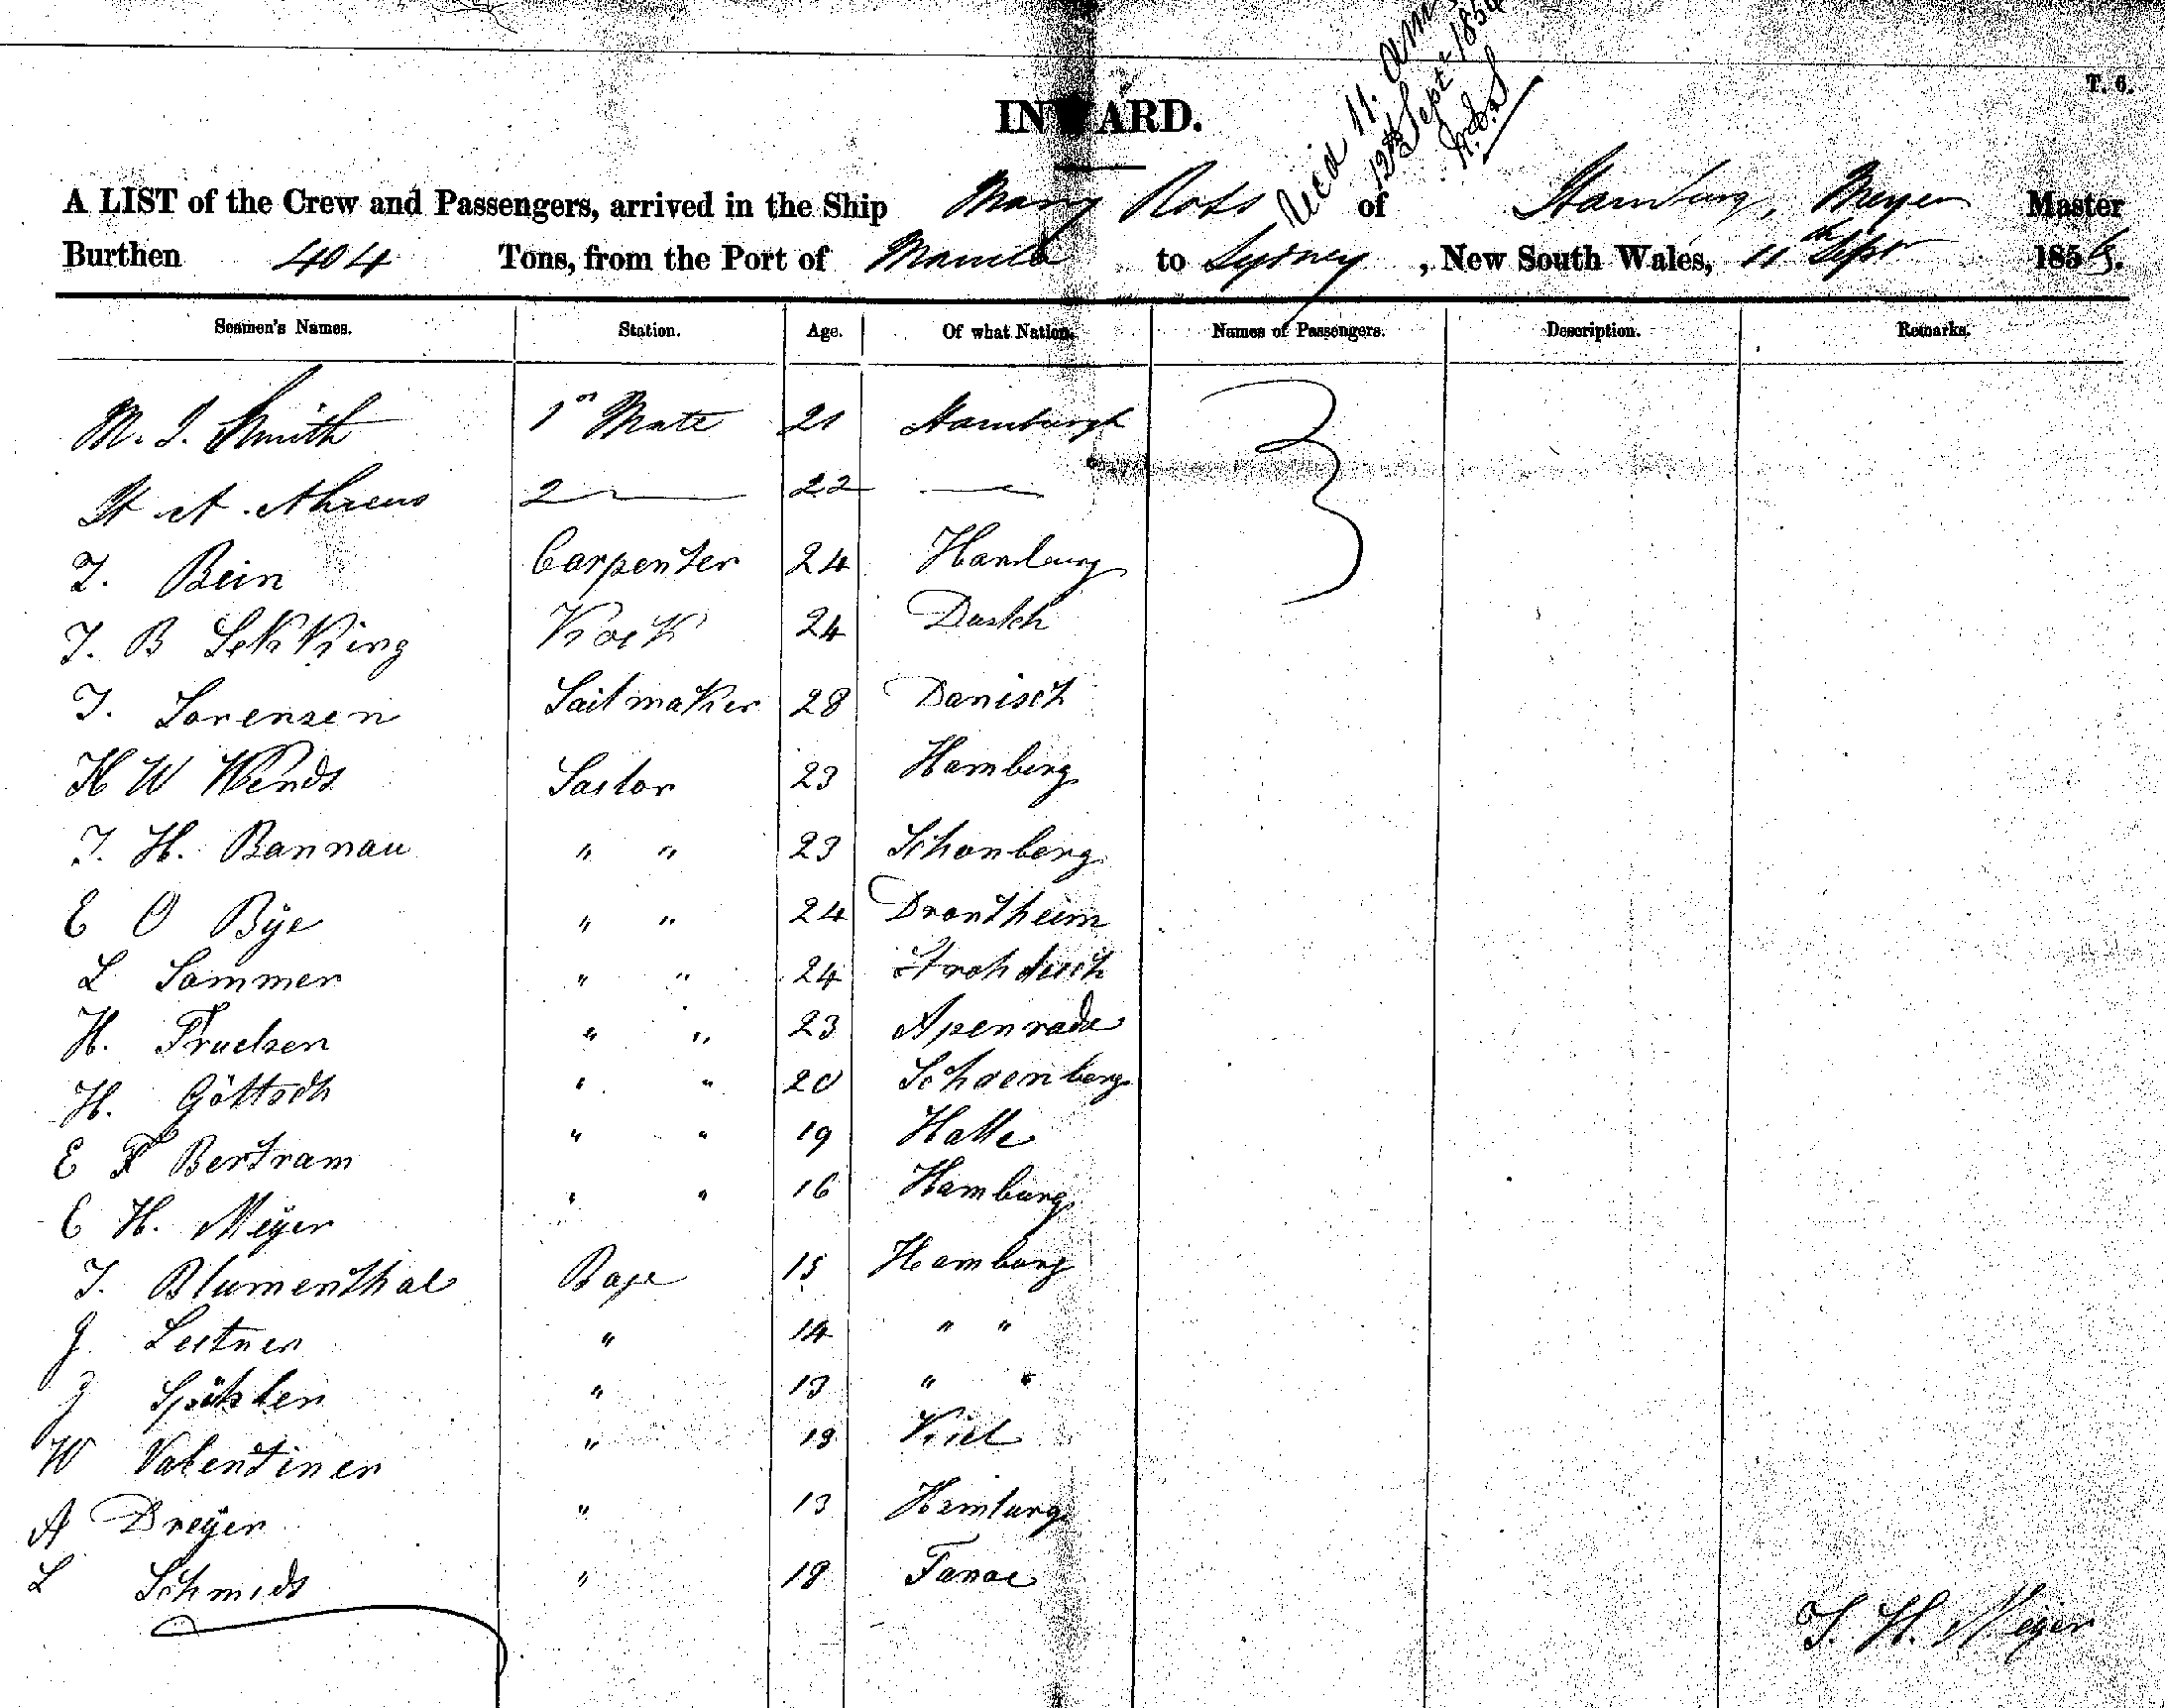 T. 6.
Recd 11. am
12th Sept 1856
INWARD.
A LIST of the Crew and Passengers, arrived in the Ship Mary Ross of Hamburg, Meyer Master
Burthen 404 Tons, from the Port of Manila to Sydney, New South Wales, 11th Sept 1856.
Seamen's Names. Station. Age. Of what Nation. Names of Passengers. Description. Remarks.
M. J. Smith 1st Mate 21 Hamburgh
H A Ahrens 2 — 22 —
J. Bein Carpenter 24 Hamburg
J. B Sekking Kock 24 Dustch
J. Sorensen Sailmaker 28 Danisch
H W Wends Sailor 23 Hamburg
J. H. Bannau " " 23 Schonberg
E O Bÿe " " 24 Drontheim
L Sammer " " 24
H. Truelsen " " 23 Apenrade
H. Göttsch " " 20 Schoenberg
E F Bertram " " 19 Halle
C H. Meÿer " " 16 Hamburg
J. Blumenthal Boye 15 Hamburg
J. Leitner " 14 " "
J " 13 " "
W Valentiner " 18 Kiel
A Dreÿer " 13 Hamburg
L Schmids " 18 Fanoe
J. H. Meÿer